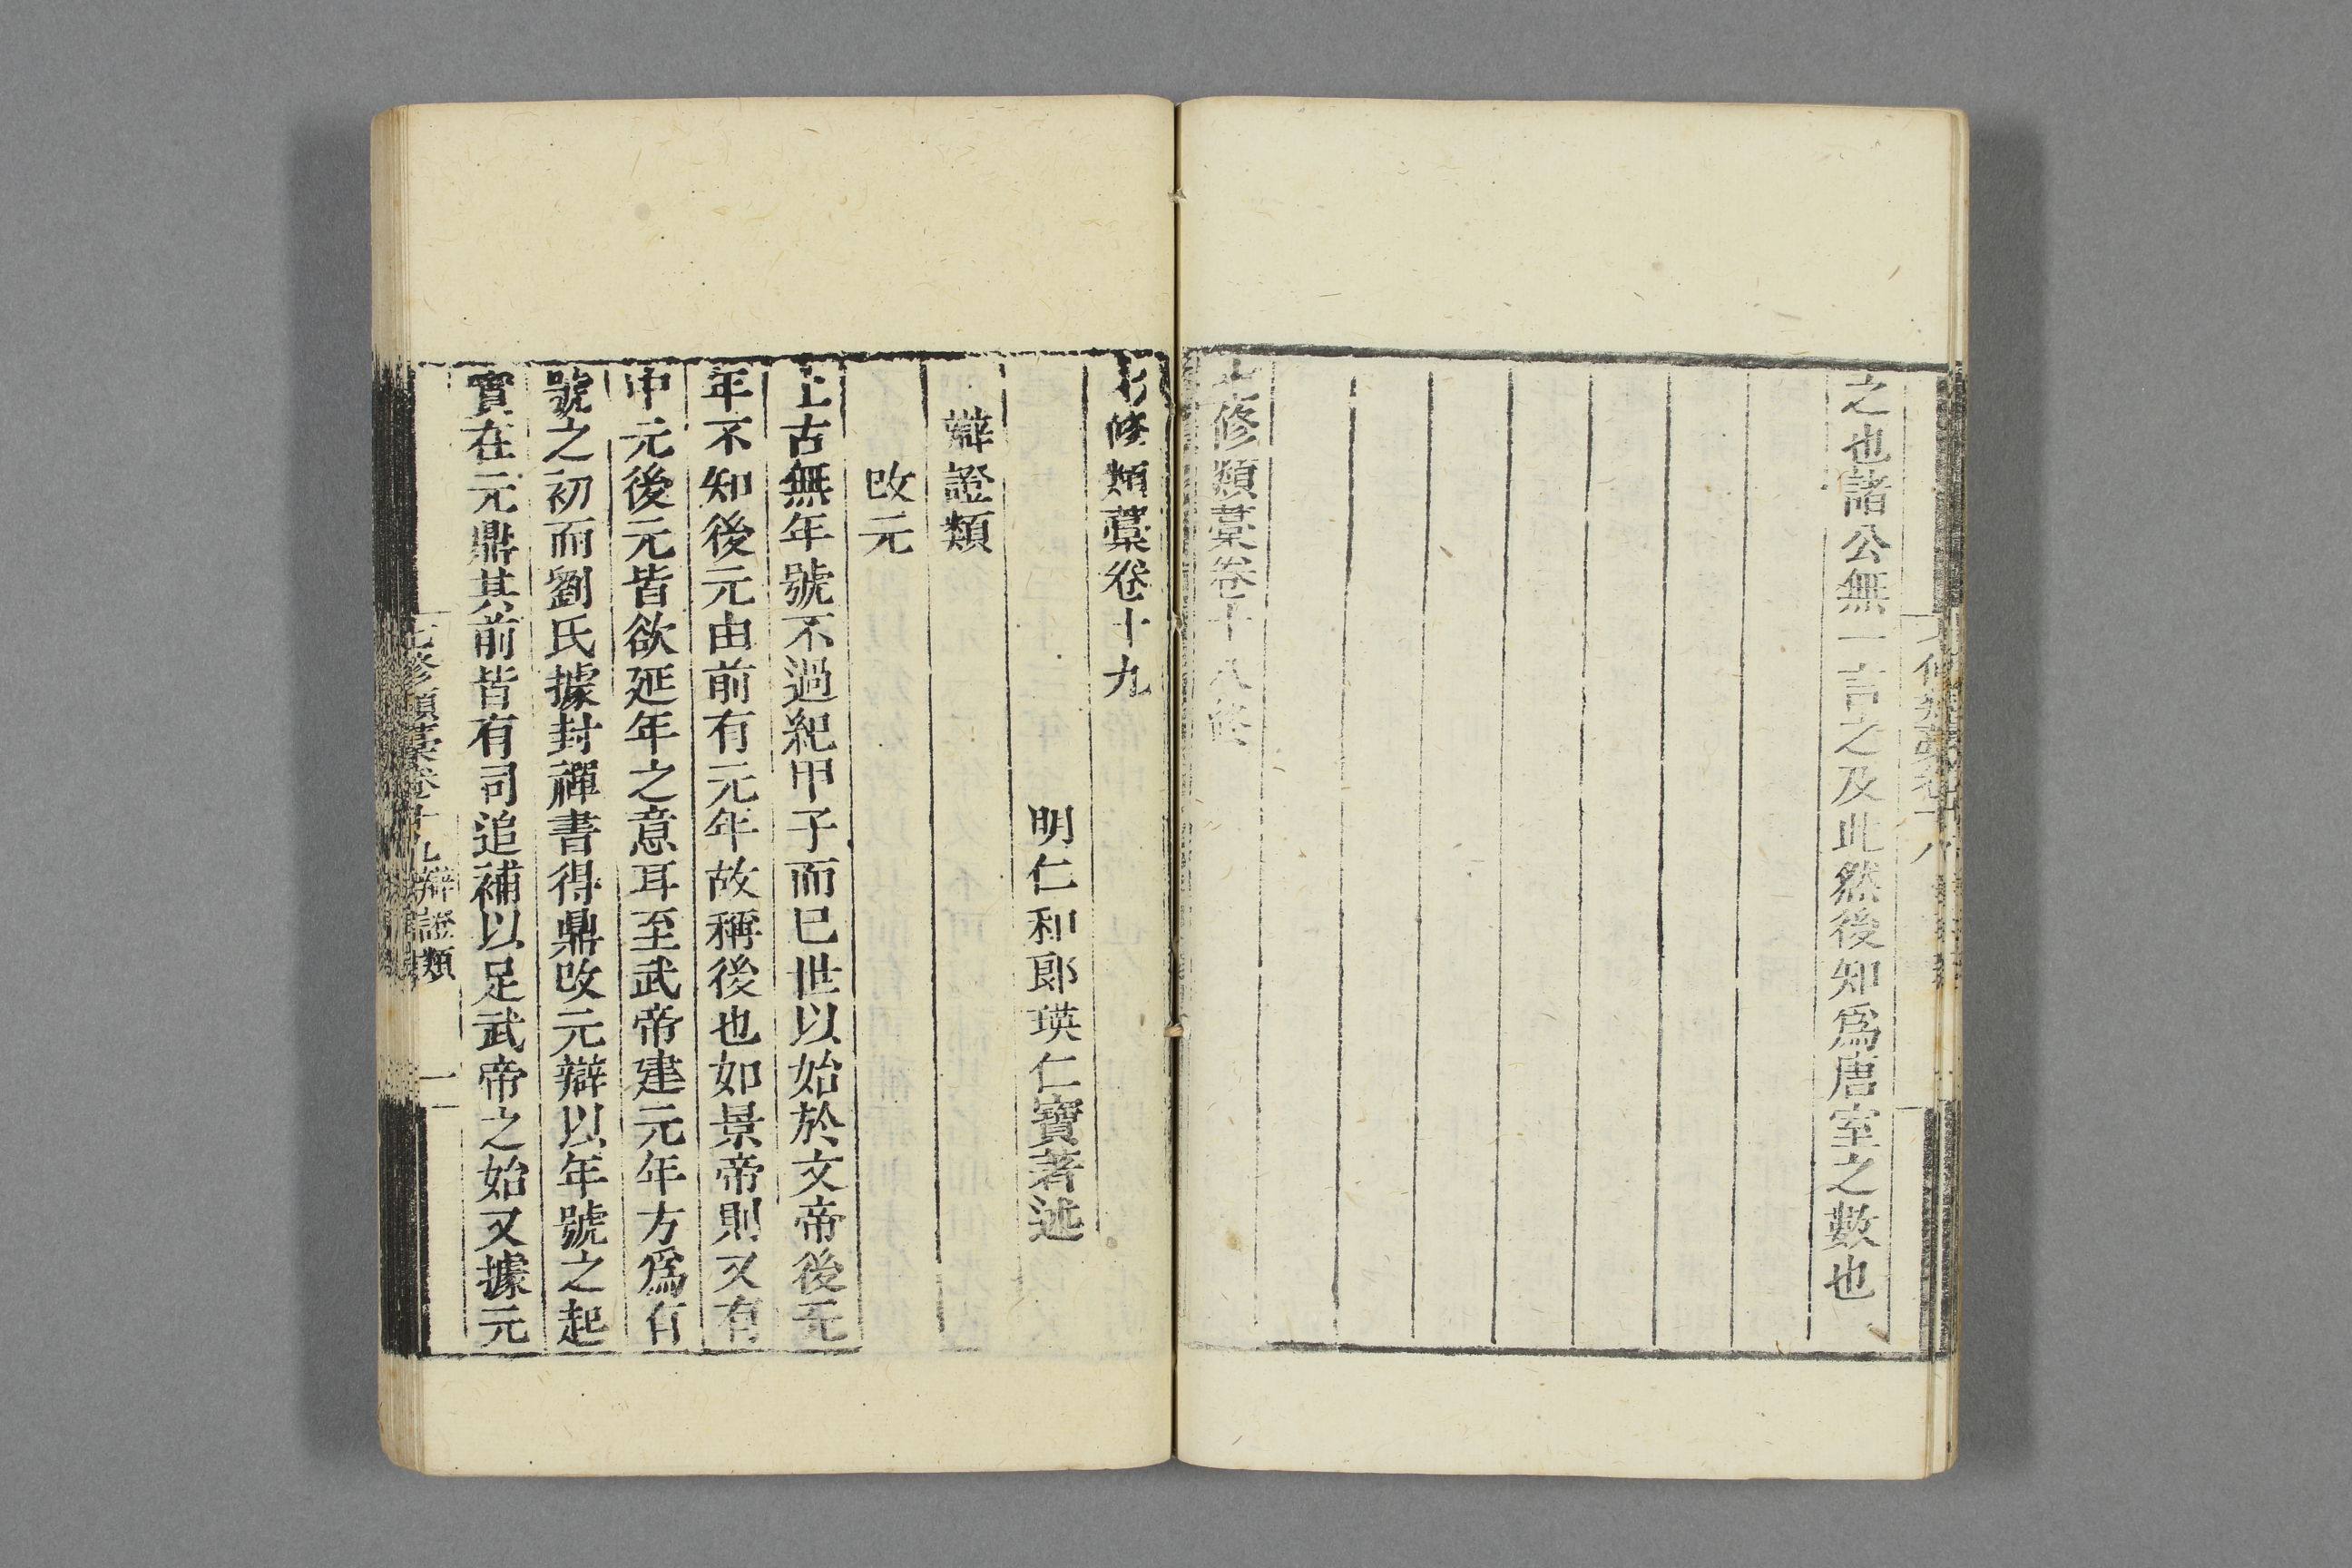 之也諸公無一言之及此然後知爲唐室之數也
七修類藁卷十八終
七修類藁卷十九
明仁和郎瑛仁寶著述
辯證類
改元
上古無年號不過紀甲子而已世以始於文帝後元
年不知後元由前有元年故稱後也如景帝則又有
中元後元皆欲延年之意耳至武帝建元元年方爲有
號之初而劉氏據封禪書得鼎改元辯以年號之起
實在元鼎其前皆有司追補以足武帝之始又據元
七修類藁卷十九 辯證類 一